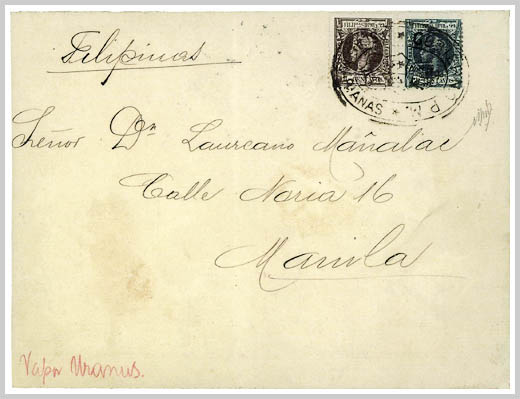 Filipinas
RIANAS
Señor Dn Laureano Mañalac
Calle Noria 16
Manila
Vapor Uranus.